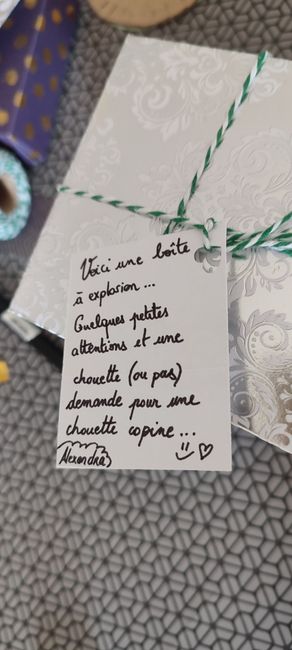 Voici une boîte
à explosion...
Quelques petites
attentions et une
chouette (ou pas)
demande pour une
chouette copine...
Alexandra